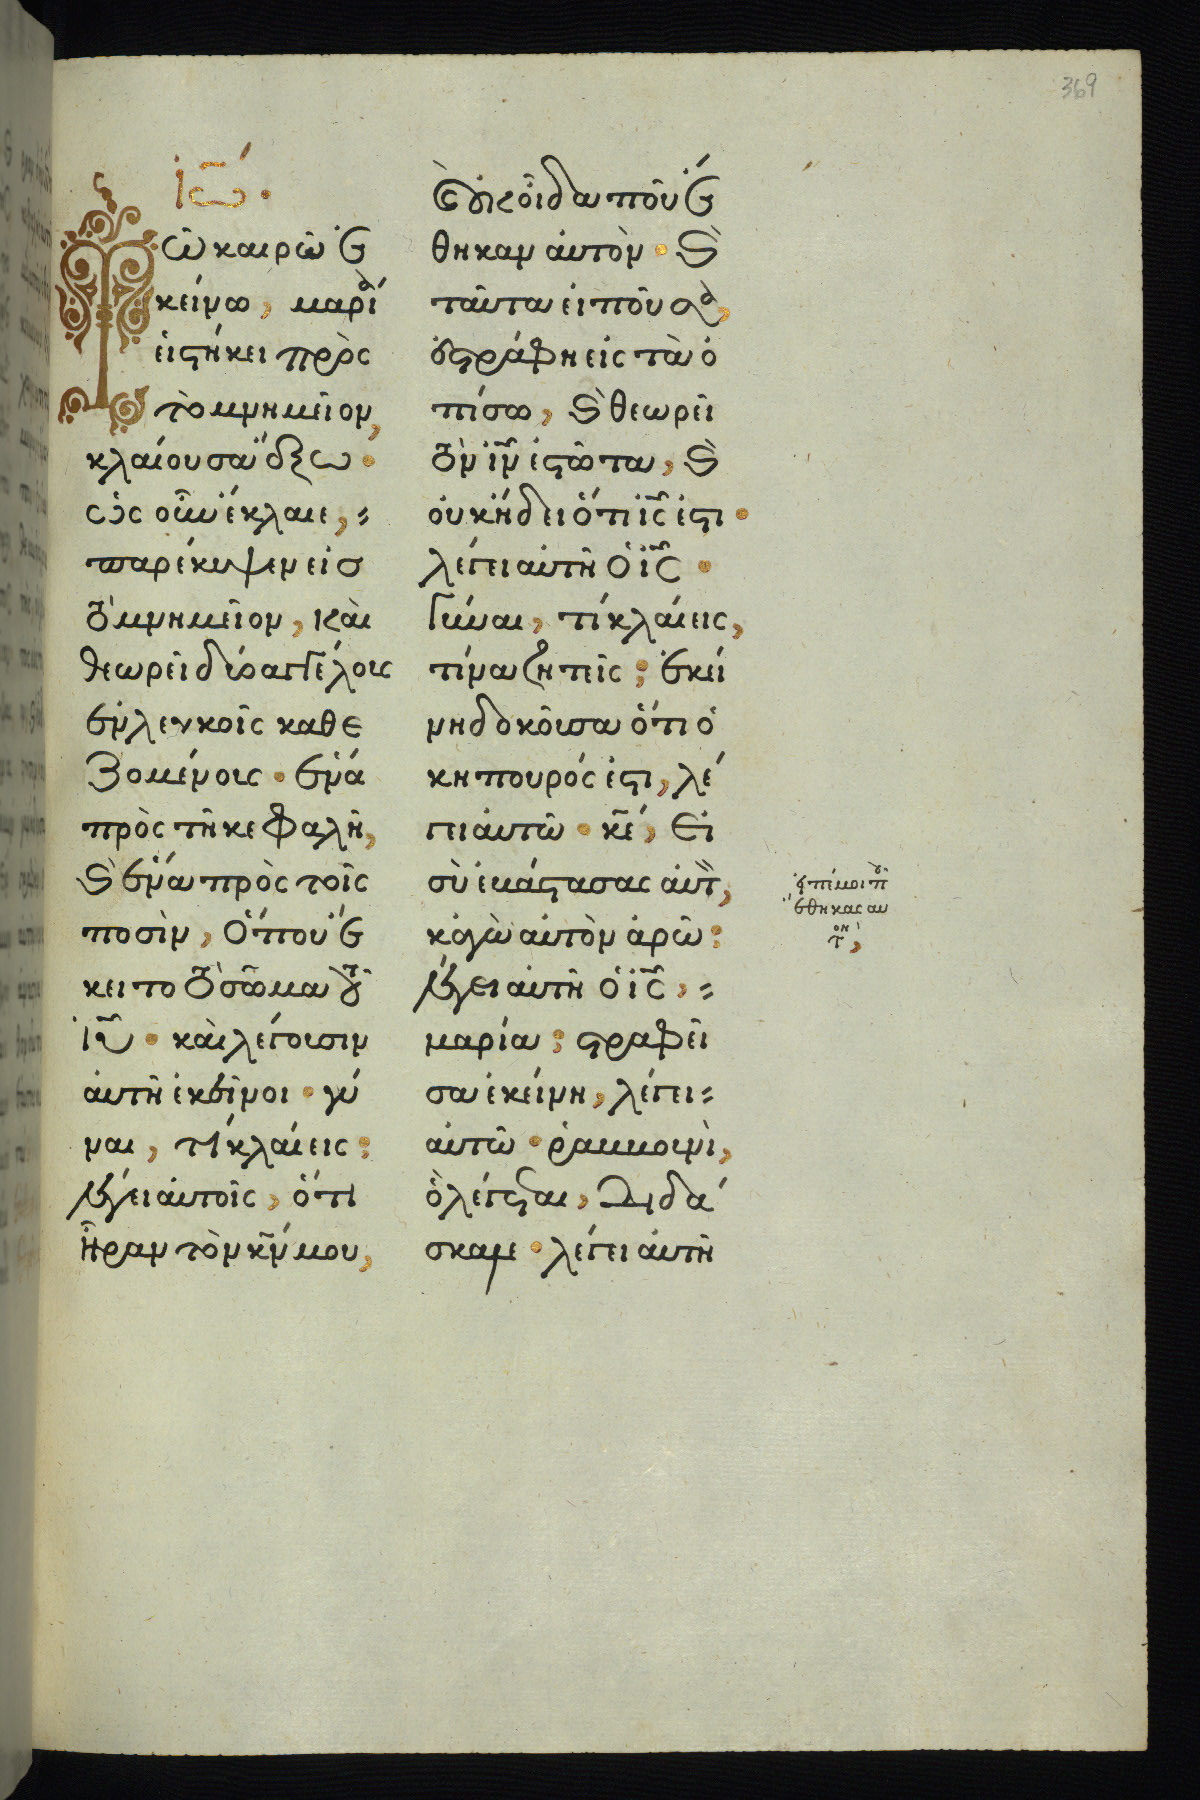 369
Ἰω´·
Τῶ καιρῶ ἐ
κείνω, μαρί
εἱστήκει πρὸς
τὸ μνημεῖον,
κλαίουσα ἔξω·
ὡς οὖν ἔκλαιε,
παρέκυψεν εἰσ
τὸ μνημεῖον, καὶ
θεωρεῖ δύο ἀγγέλους
ἐν λευκοῖς καθε
ζομένους· ἕνα
πρὸς τῆ κεφαλῆ,
κ(αὶ) ἕνα πρὸς τοῖς
ποσὶν, ὅπου ἔ
κειτο τὸ σῶμα τοῦ
ιυ· καὶ λέγουσιν
αὐτῆ ἐκεῖνοι· γύ
ναι, τί κλαίεις;
λέγει αὐτοῖς, ὅτι
ἦραν τὸν κν μου,
κ(αὶ) οὐκ οἶδα ποῦ ἔ
θηκαν αὐτὸν· κ(αὶ)
ταῦτα εἰποῦσα,
ἐστράφη εἰς τὰ ὀ
πίσω, κ(αὶ) θεωρεῖ
τὸν ιν ἑστῶτα, κ(αὶ)
οὐκ ἤδει ὅτι ις ἐστι·
λέγει αὐτῆ ὁ ις·
Γύναι, τί κλαίεις,
τίνα ζητεῖς; ἐκεί
νη δοκοῦσα ὅτι ὁ
κηπουρός ἐστι, λέ
γει αὐτῶ· κε, εἰ
σὺ ἐβάστασας αὐτ,
κἀγὼ αὐτὸν ἀρῶ:
λέγει αὐτῆ ὁ ις,
μαρία; στραφεῖ
σα ἐκείνη, λέγει
αὐτῶ· ῥαββουνὶ,
ὃ λέγεται, Διδά
σκαλε· λέγει αὐτῆ
εἰπέ μοι ποῦ
ἔθηκας αυ
τον,